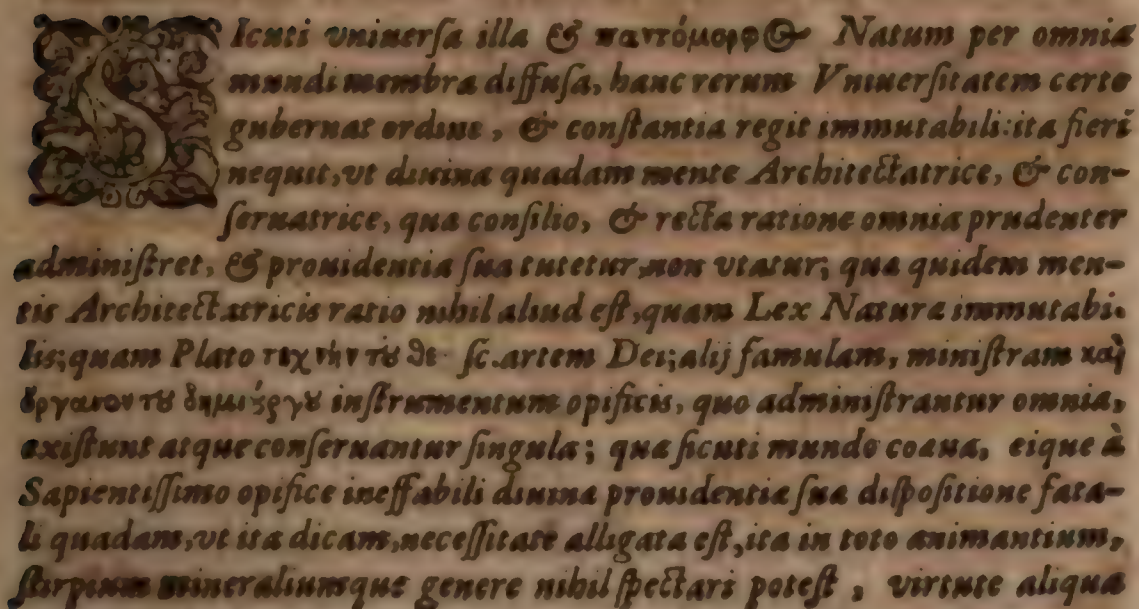 SIcuti vniuerſa illa & παντόμορφ⊕ Natura per omnia
mundi membra diffuſa, hanc rerum Vniuerſitatem certo
gubernat ordine, & conſtantia regit immutabili: ita fieri
nequit, vt diuina quadam mente Architectatrice, & con-
ſeruatrice, qua conſilio, & recta ratione omnia prudenter
adminiſtret, & prouidentia ſua tutetur, non vtatur; quæ quidem men-
tis Architectatricis ratio nihil aliud eſt, quam Lex Naturæ immutabi-
lis; quam Plato τεχνὴν τȣ θε ſc. artem Dei; alij famulam, miniſtram καὶ
ὄργανον τȣ δημιόργȣ inſtrumentum opificis, quo adminiſtrantur omnia,
exiſtunt atque conſeruantur ſingula; quæ ſicuti mundo coæua, eique à
Sapientiſſimo opifice ineffabili diuinæ prouidentiæ ſuæ diſpoſitione fata-
li quadam, vt ita dicam, neceſſitate alligata eſt, ita in toto animantium,
ſtirpium mineraliumque genere nihil ſpectari poteſt, virtute aliqua